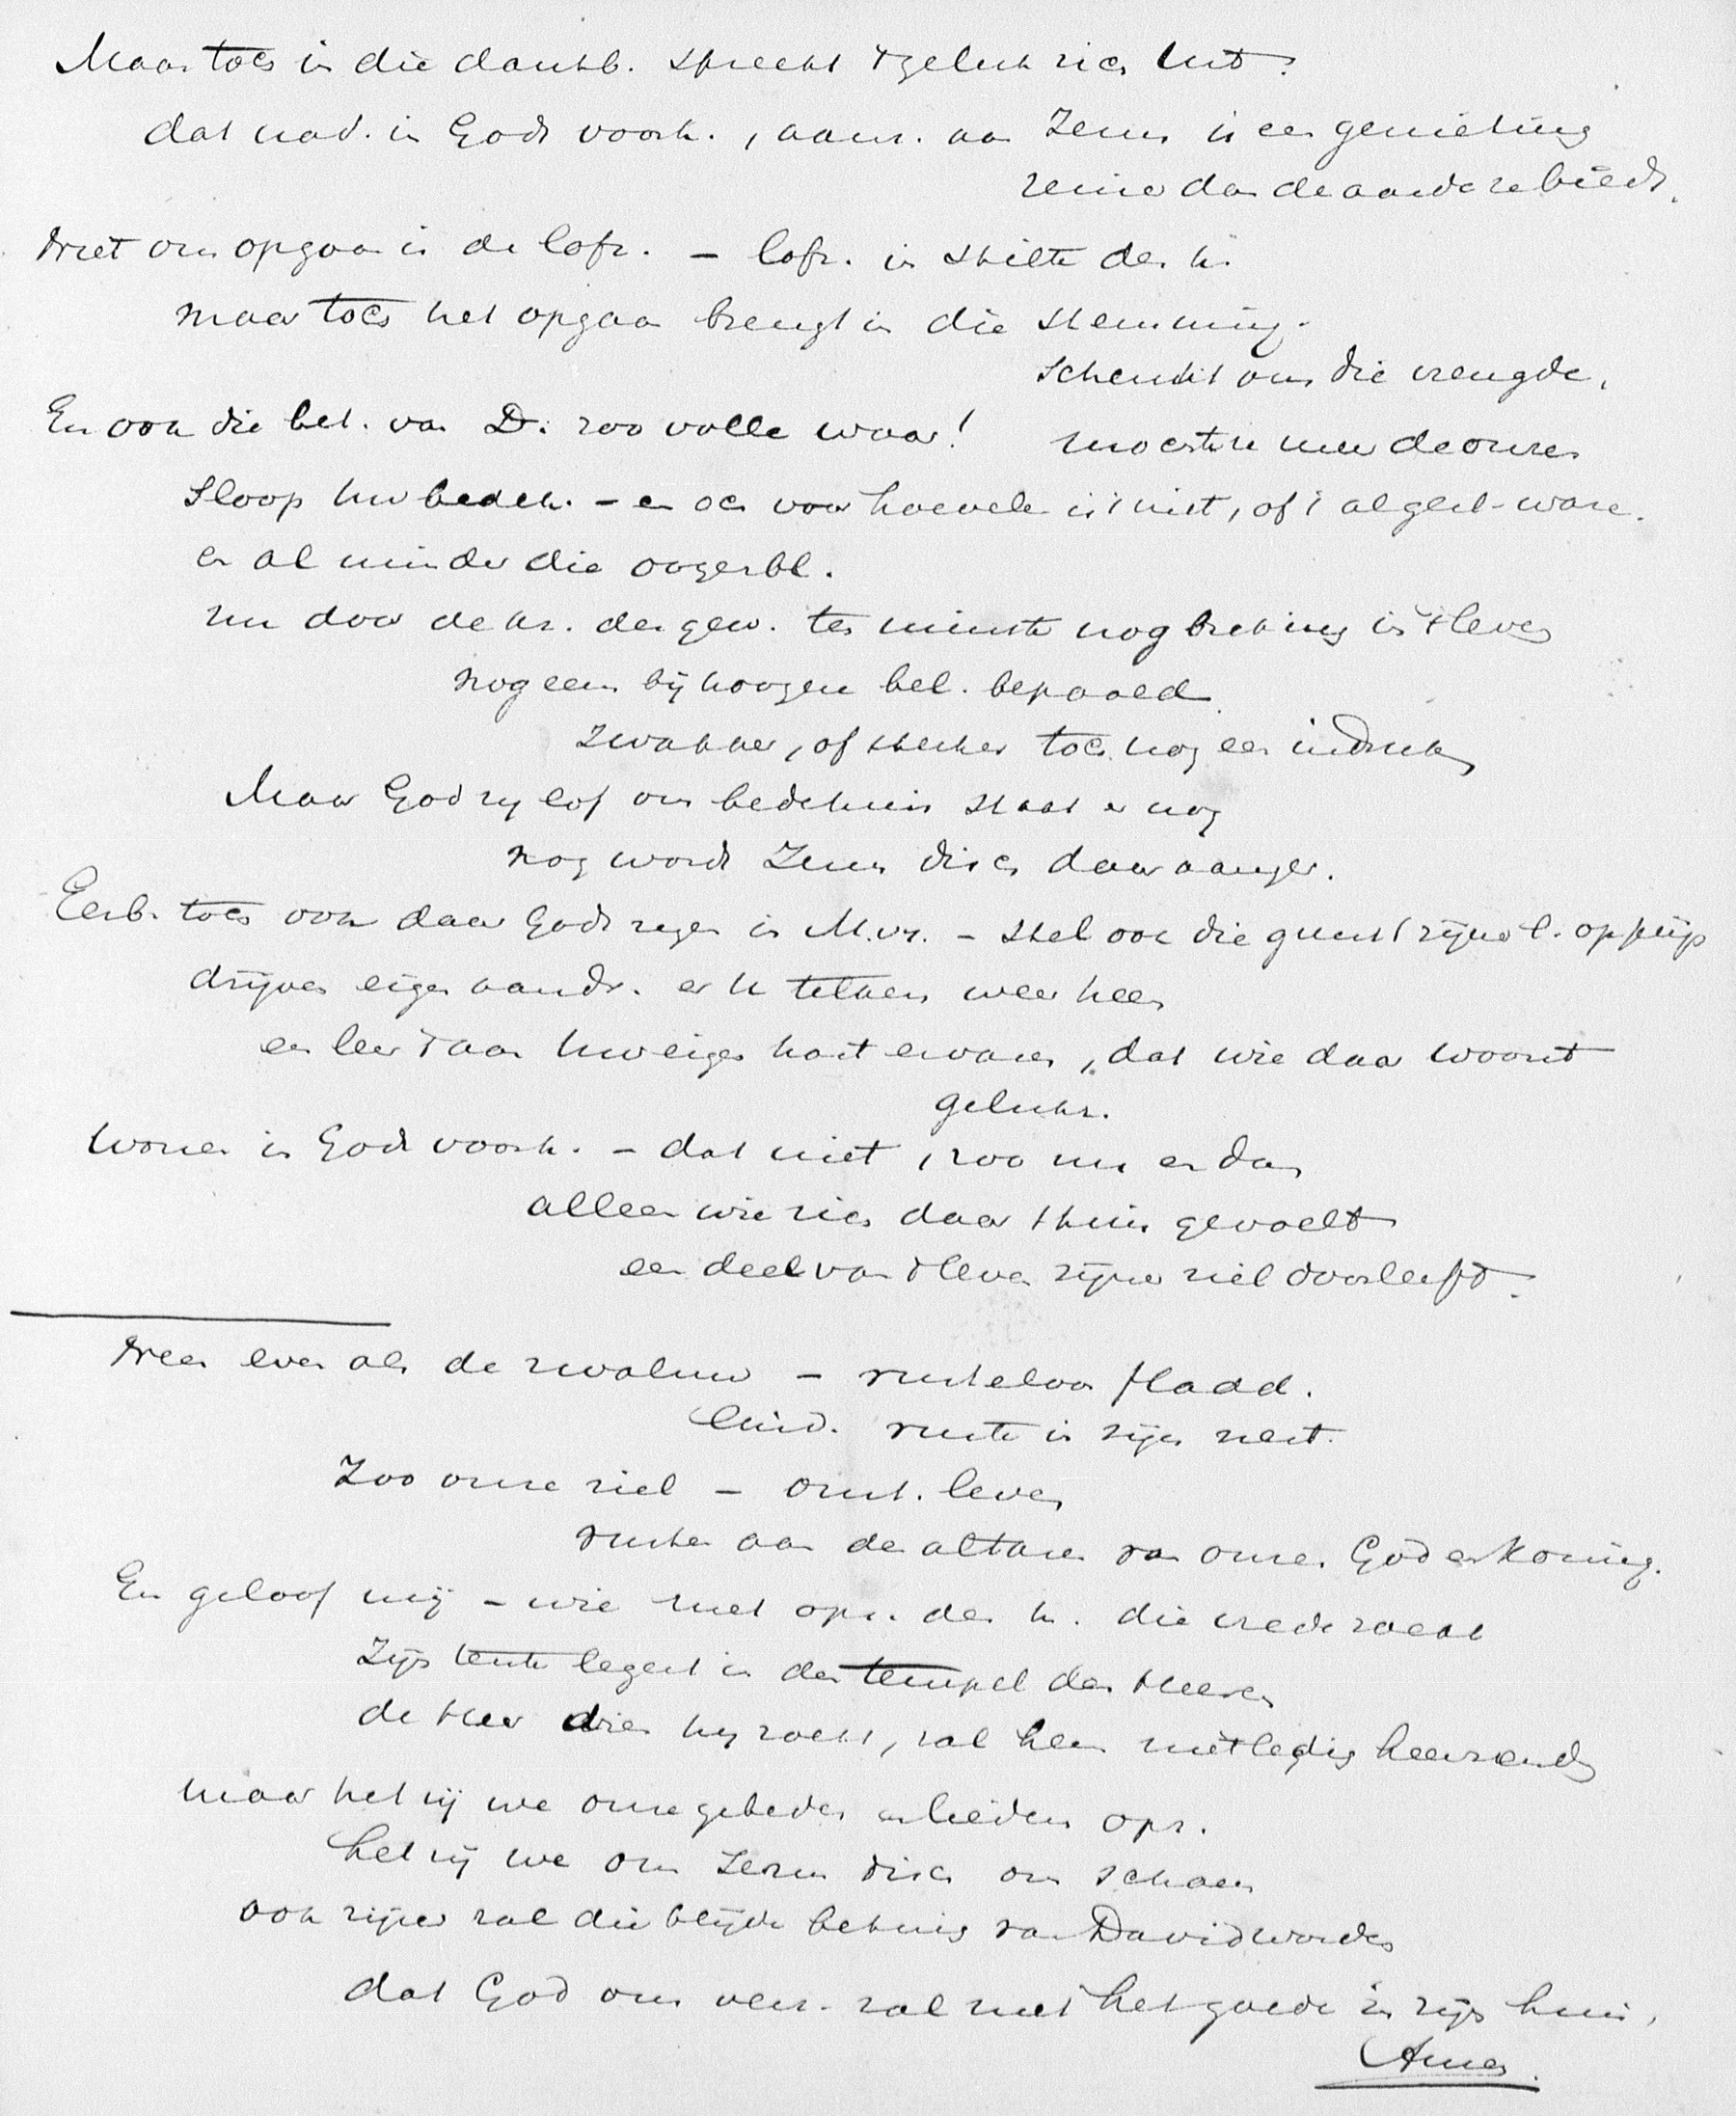 Maar toch in die dankb. spreekt 't geluk zich uit.
dat nad. in Gods voorh., aanz. aan Jezus is een genieting
reiner dan de aarde ze biedt.
Niet ons opgaan in de lofz. – lofz. in stilte des h.
maar toch het opgaan brengt in die stemming.
schenkt ons die vreugde.
En ook die bet. van D. zoo volle waar!
moesten we de onzen
Sloop uw bedeh. – en och voor hoevelen is 't niet, of 't al gesl. ware.
en al minder die oogenbl.
nu door de kr. der gew. ten minste nog betrekking in 't leven
nog eens bij hoogere bel. bepaald
zwakker, of sterker toch nog een indruk
Maar God zij lof ons bedehuis staat er nog
nog wordt Jezus disch daar aanger.
Eerb. toch ook daar Gods zegen in M. vr. – stel ook die gunst zijner l. op prijs
drijve eigen aandr. er u telkens weer heen
en leer 't aan uw eigen hart ervaren, dat wie daar woont
gelukk.
wonen in Gods voorh. – dat niet, zoo nu en dan
alleen wie zich daar thuis gevoelt
een deel van 't leven zijner ziel doorleeft.
Neen even als de zwaluw – rusteloos fladd.
eind. ruste in zijn nest.
Zoo onze ziel – onrust. leven
rusten aan de altaren van onzen God en Koning.
En geloof mij – wie met opr. des h. die vrede zoekt
Zijn tente legert in den tempel des Heeren
de Heer dien hij zoekt, zal hem niet ledig heenzenden
maar het zij we onze gebeden en liederen opz.
het zij we ons om Jezus disch om scharen
ook zijner zal die blijde betuig van David worden
dat God ons verz. zal met het goede in zijn huis,
Amen.